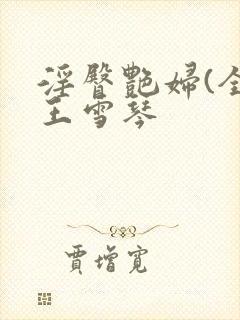 淫臀艷婦(全
王雪琴
賈增寬